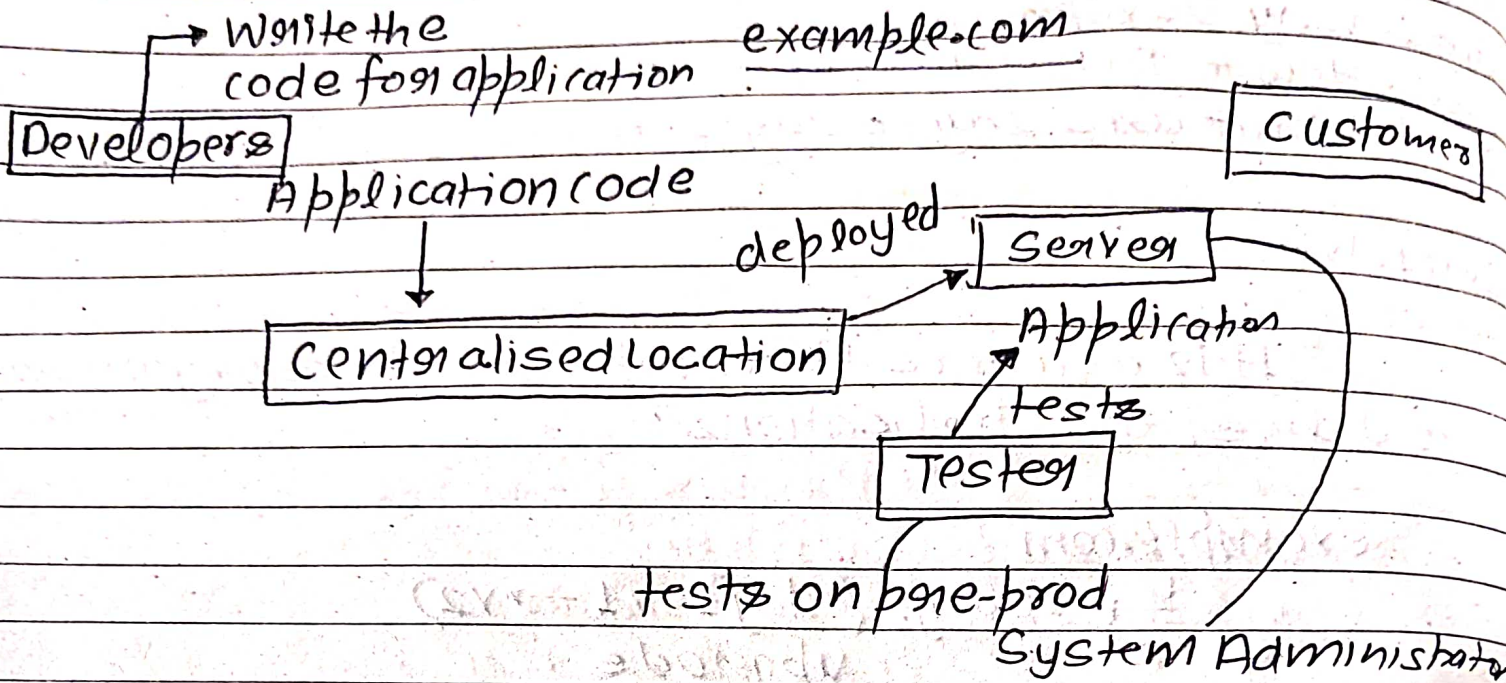 Write the
code for application
example.com
Developers
Customer
Application code
deployed
Server
Centralised location
Application
tests
Tester
tests on pre-prod
System Administrator